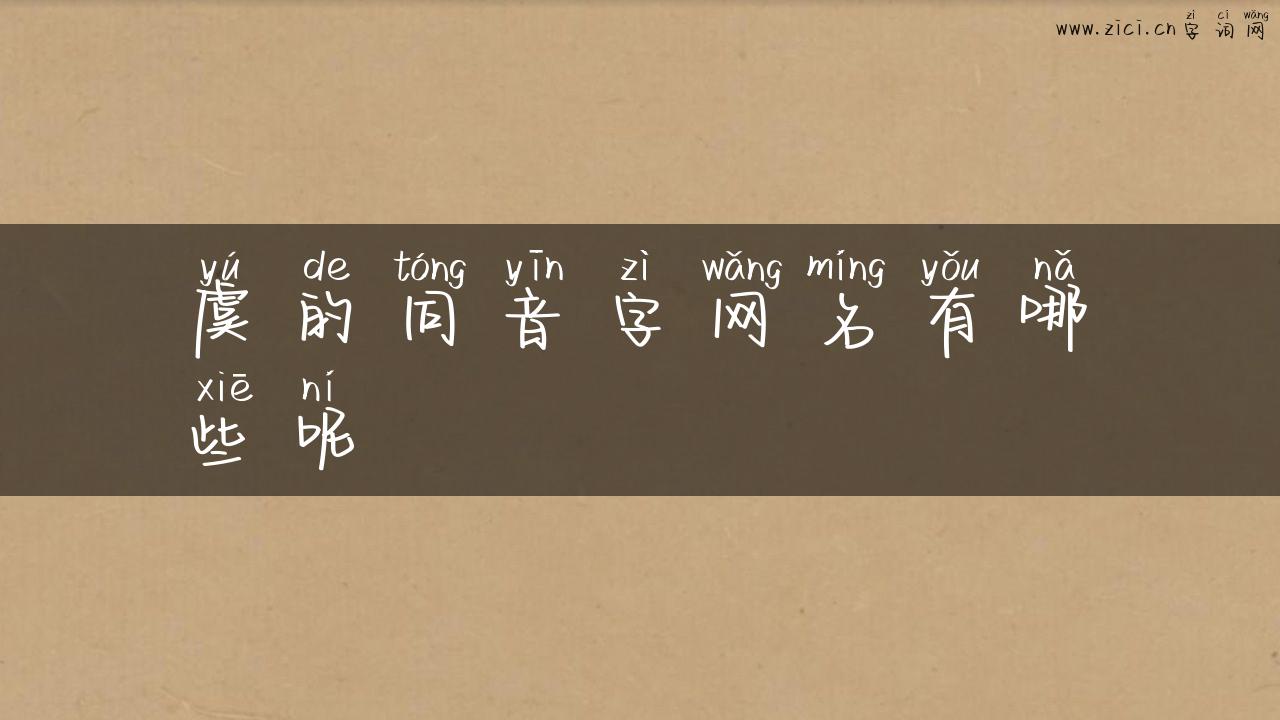 zì cí wǎng
www.zici.cn 字词网
yú de tóng yīn zì wǎng míng yǒu nǎ
虞的同音字网名有哪
xiē ní
些呢